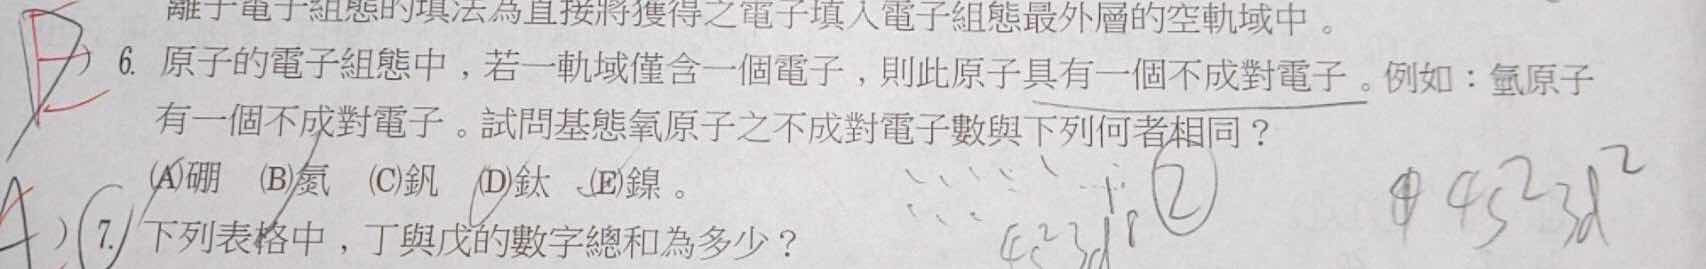 離子電子組態的填法為直接將獲得之電子填入電子組態最外層的空軌域中。
6. 原子的電子組態中,若一軌域僅含一個電子,則此原子具有一個不成對電子。例如:氫原子
有一個不成對電子。試問基態氧原子之不成對電子數與下列何者相同?
(A)硼 (B)氮 (C)釩 (D)鈦 (E)鎳。
4s²3d⁸ ②
4s²3d²
7. 下列表格中,丁與戊的數字總和為多少?